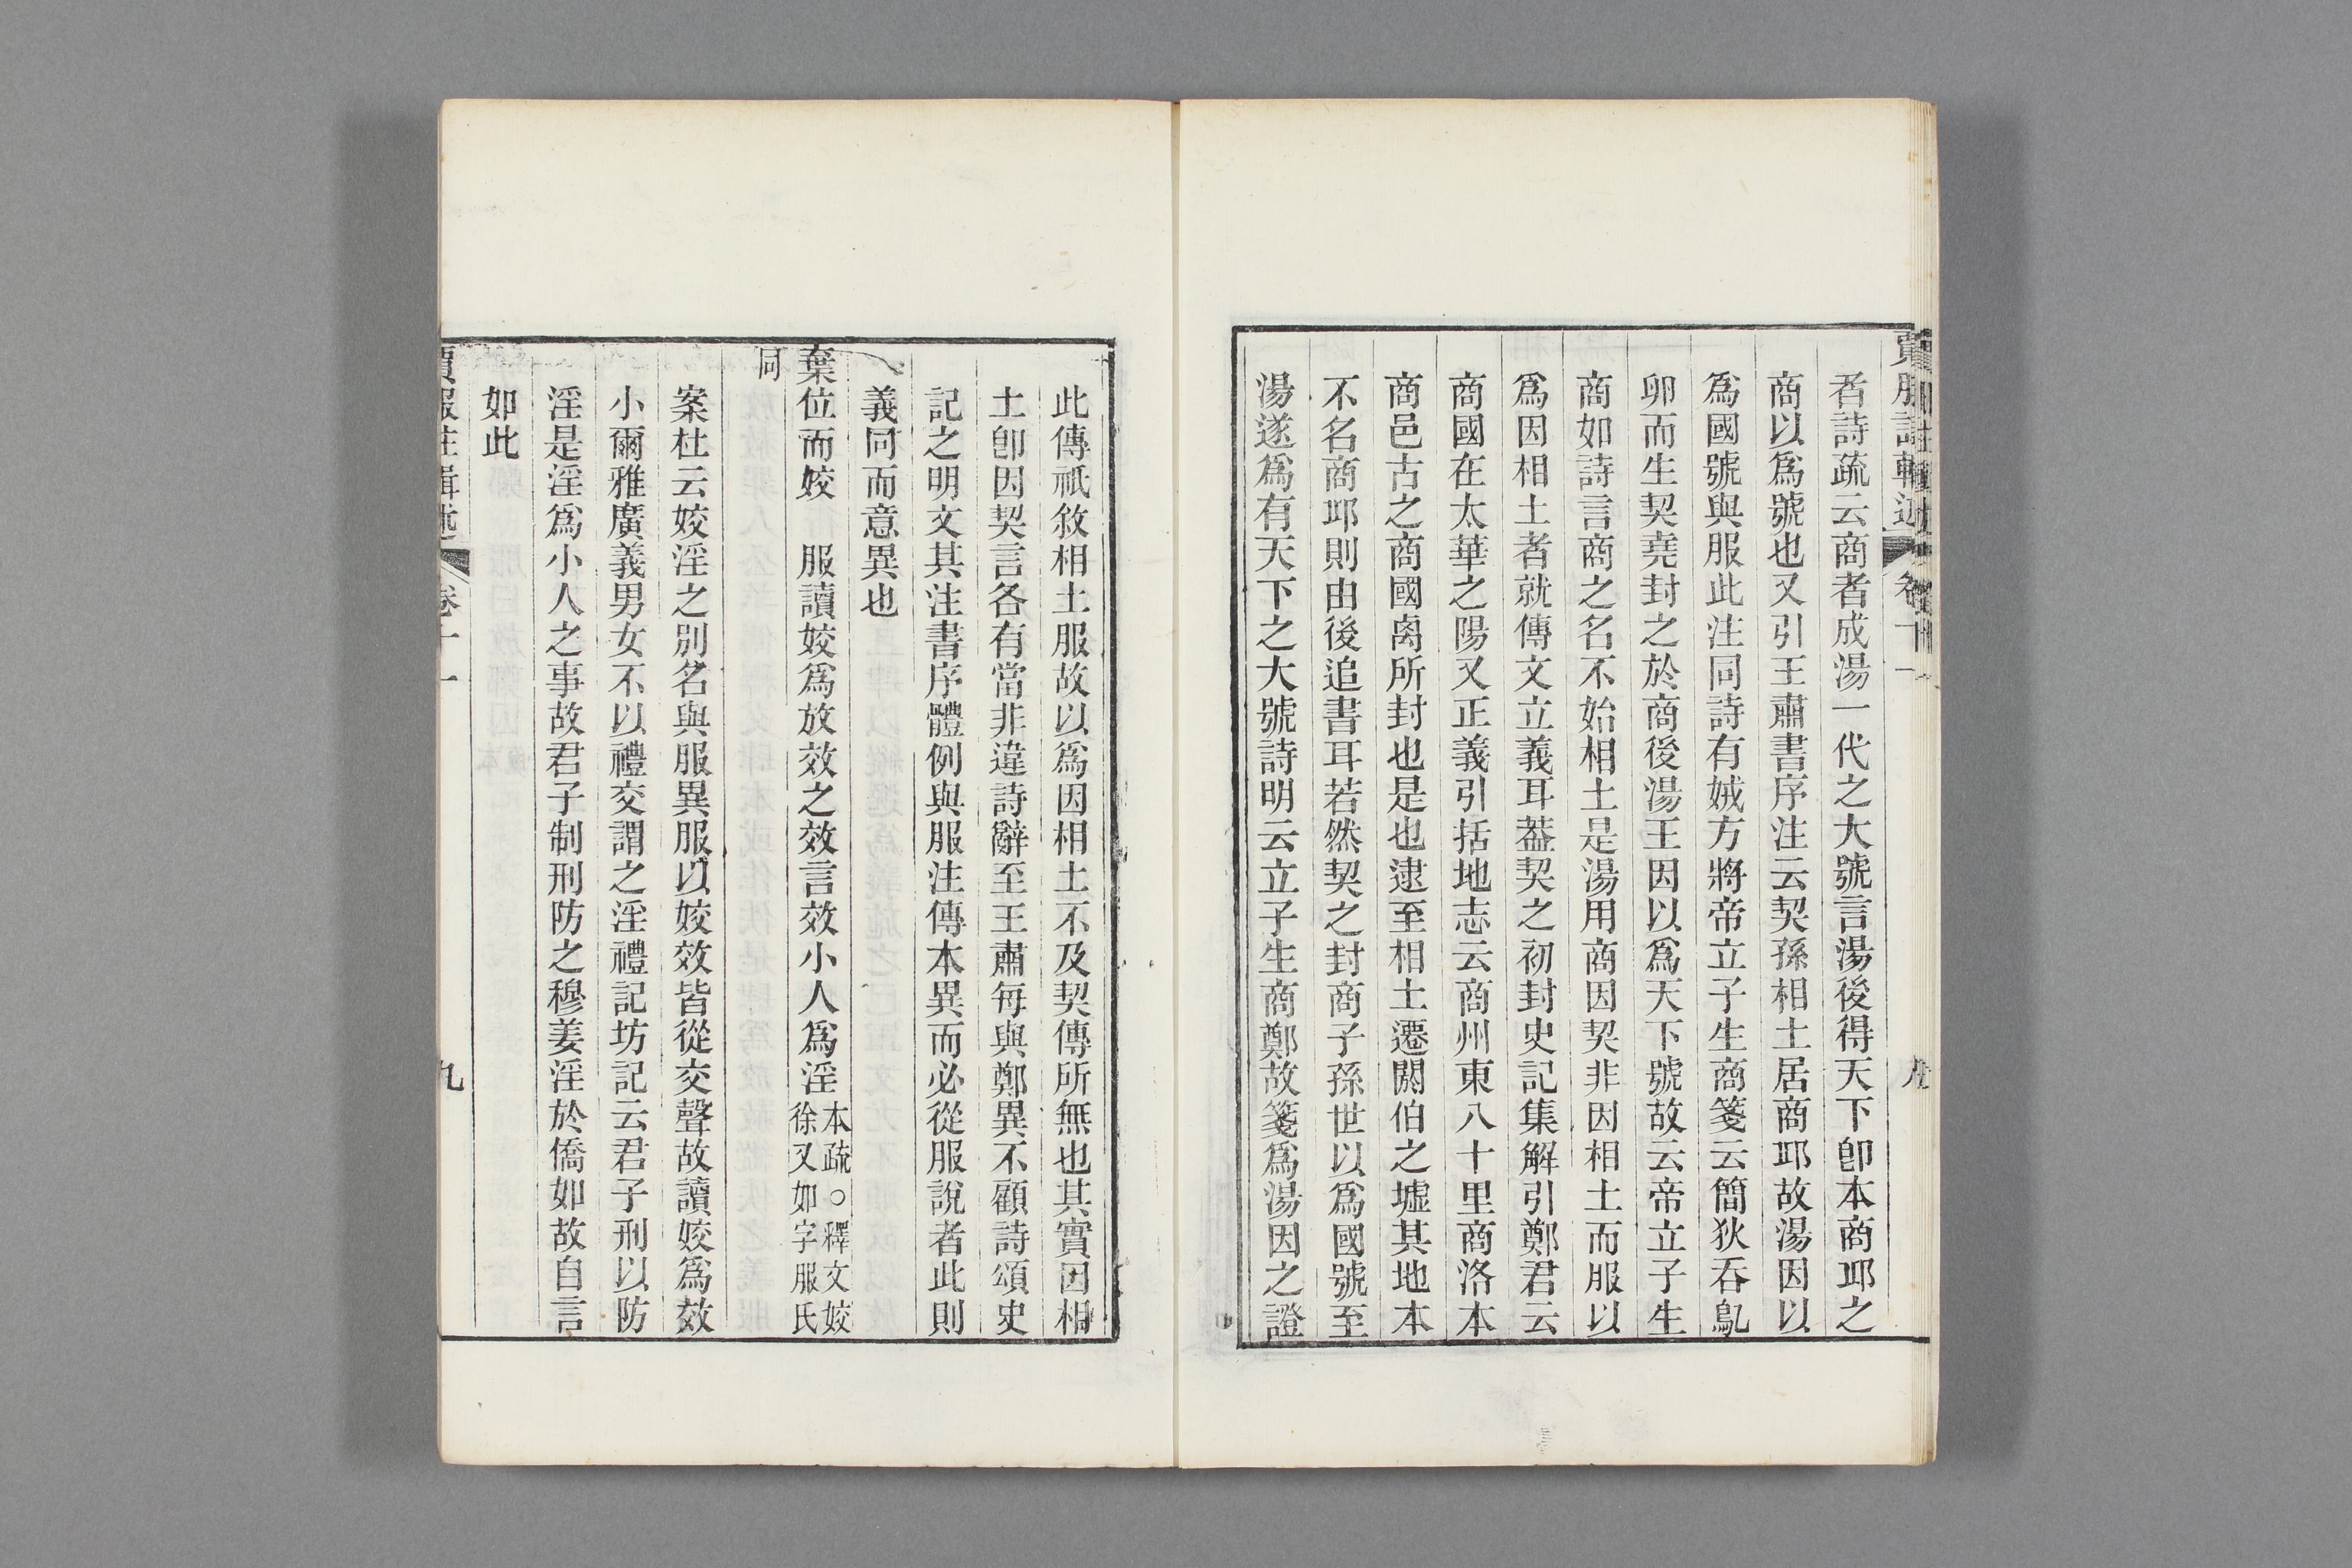 者詩疏云商者成湯一代之大號言湯後得天下卽本商邱之
商以爲號也又引王肅書序注云契孫相土居商邱故湯因以
爲國號與服此注同詩有娀方將帝立子生商箋云簡狄吞鳦
卵而生契堯封之於商後湯王因以爲天下號故云帝立子生
商如詩言商之名不始相土是湯用商因契非因相土而服以
爲因相土者就傳文立義耳葢契之初封史記集解引鄭君云
商國在太華之陽又正義引括地志云商州東八十里商洛本
商邑古之商國卨所封也是也逮至相土遷閼伯之墟其地本
不名商邱則由後追書耳若然契之封商子孫世以爲國號至
湯遂爲有天下之大號詩明云立子生商鄭故箋爲湯因之證
此傳祇敘相土服故以爲因相土不及契傳所無也其實因相
土卽因契言各有當非違詩辭至王肅每與鄭異不顧詩頌史
記之明文其注書序體例與服注傳本異而必從服說者此則
義同而意異也
棄位而姣　服讀姣爲放效之效言效小人爲淫本疏○釋文姣
徐又如字服氏
同
案杜云姣淫之別名與服異服以姣效皆從交聲故讀姣爲效
小爾雅廣義男女不以禮交謂之淫禮記坊記云君子刑以防
淫是淫爲小人之事故君子制刑防之穆姜淫於僑如故自言
如此
賈服注輯述　卷十一　九